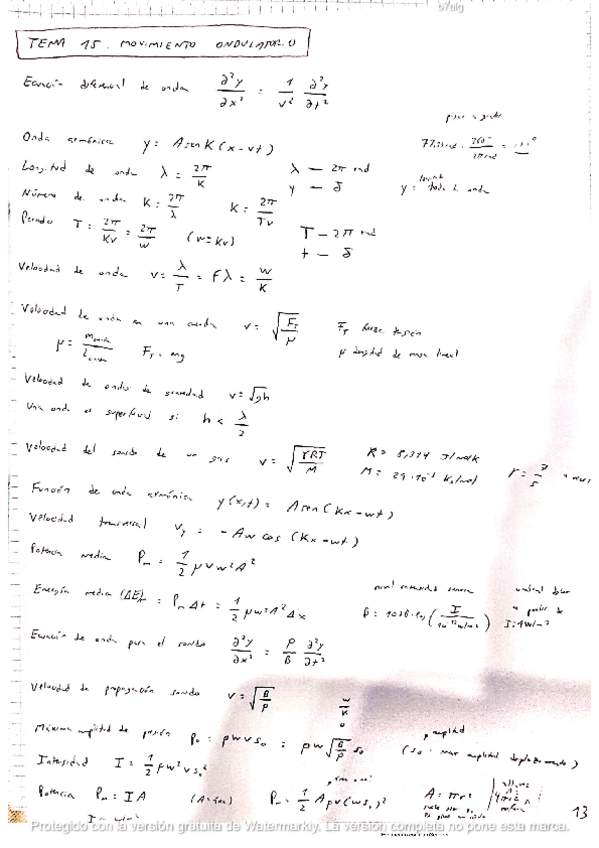 TEMA 15. MOVIMIENTO ONDULATORIO
Ecuación diferencial de onda ∂²y/∂x² = 1/v² ∂²y/∂t²
Onda armónica y = A sen K (x - vt)
Longitud de onda λ = 2π/K λ — 2π rad
y — δ
Número de onda K = 2π/λ K = 2π/Tv
Periodo T = 2π/Kv = 2π/w (w = Kv) T — 2π rad
t — δ
Velocidad de onda v = λ/T = Fλ = w/K
Velocidad de onda en una cuerda v = √(F_T/μ) F_T fuerza tensión
μ = m/L F_T = mg μ densidad de masa lineal
Velocidad de ondas de gravedad v = √gh
Una onda es superficial si h < λ/2
Velocidad del sonido de un gas v = √(γRT/M) R = 8,314 J/molK
M = 29·10⁻³ Kg/mol
Función de onda armónica y(x,t) = A sen (Kx - wt)
Velocidad transversal v_y = - Aw cos (Kx - wt)
Potencia media P_m = 1/2 μvw²A²
Energía media (ΔE)_m = P_m Δt = 1/2 μw²A²Δx
Ecuación de onda para el sonido ∂²y/∂x² = ρ/B ∂²y/∂t²
Velocidad de propagación sonido v = √(B/ρ)
Máxima amplitud de presión p₀ = ρwvs₀ = ρw√(B/ρ) s₀
Intensidad I = 1/2 ρw²vs₀²
Potencia P_m = IA P_m = 1/2 Aρv(ws₀)² A = πr²
13
Protegido con la versión gratuita de Watermarkly. La versión completa no pone esta marca.